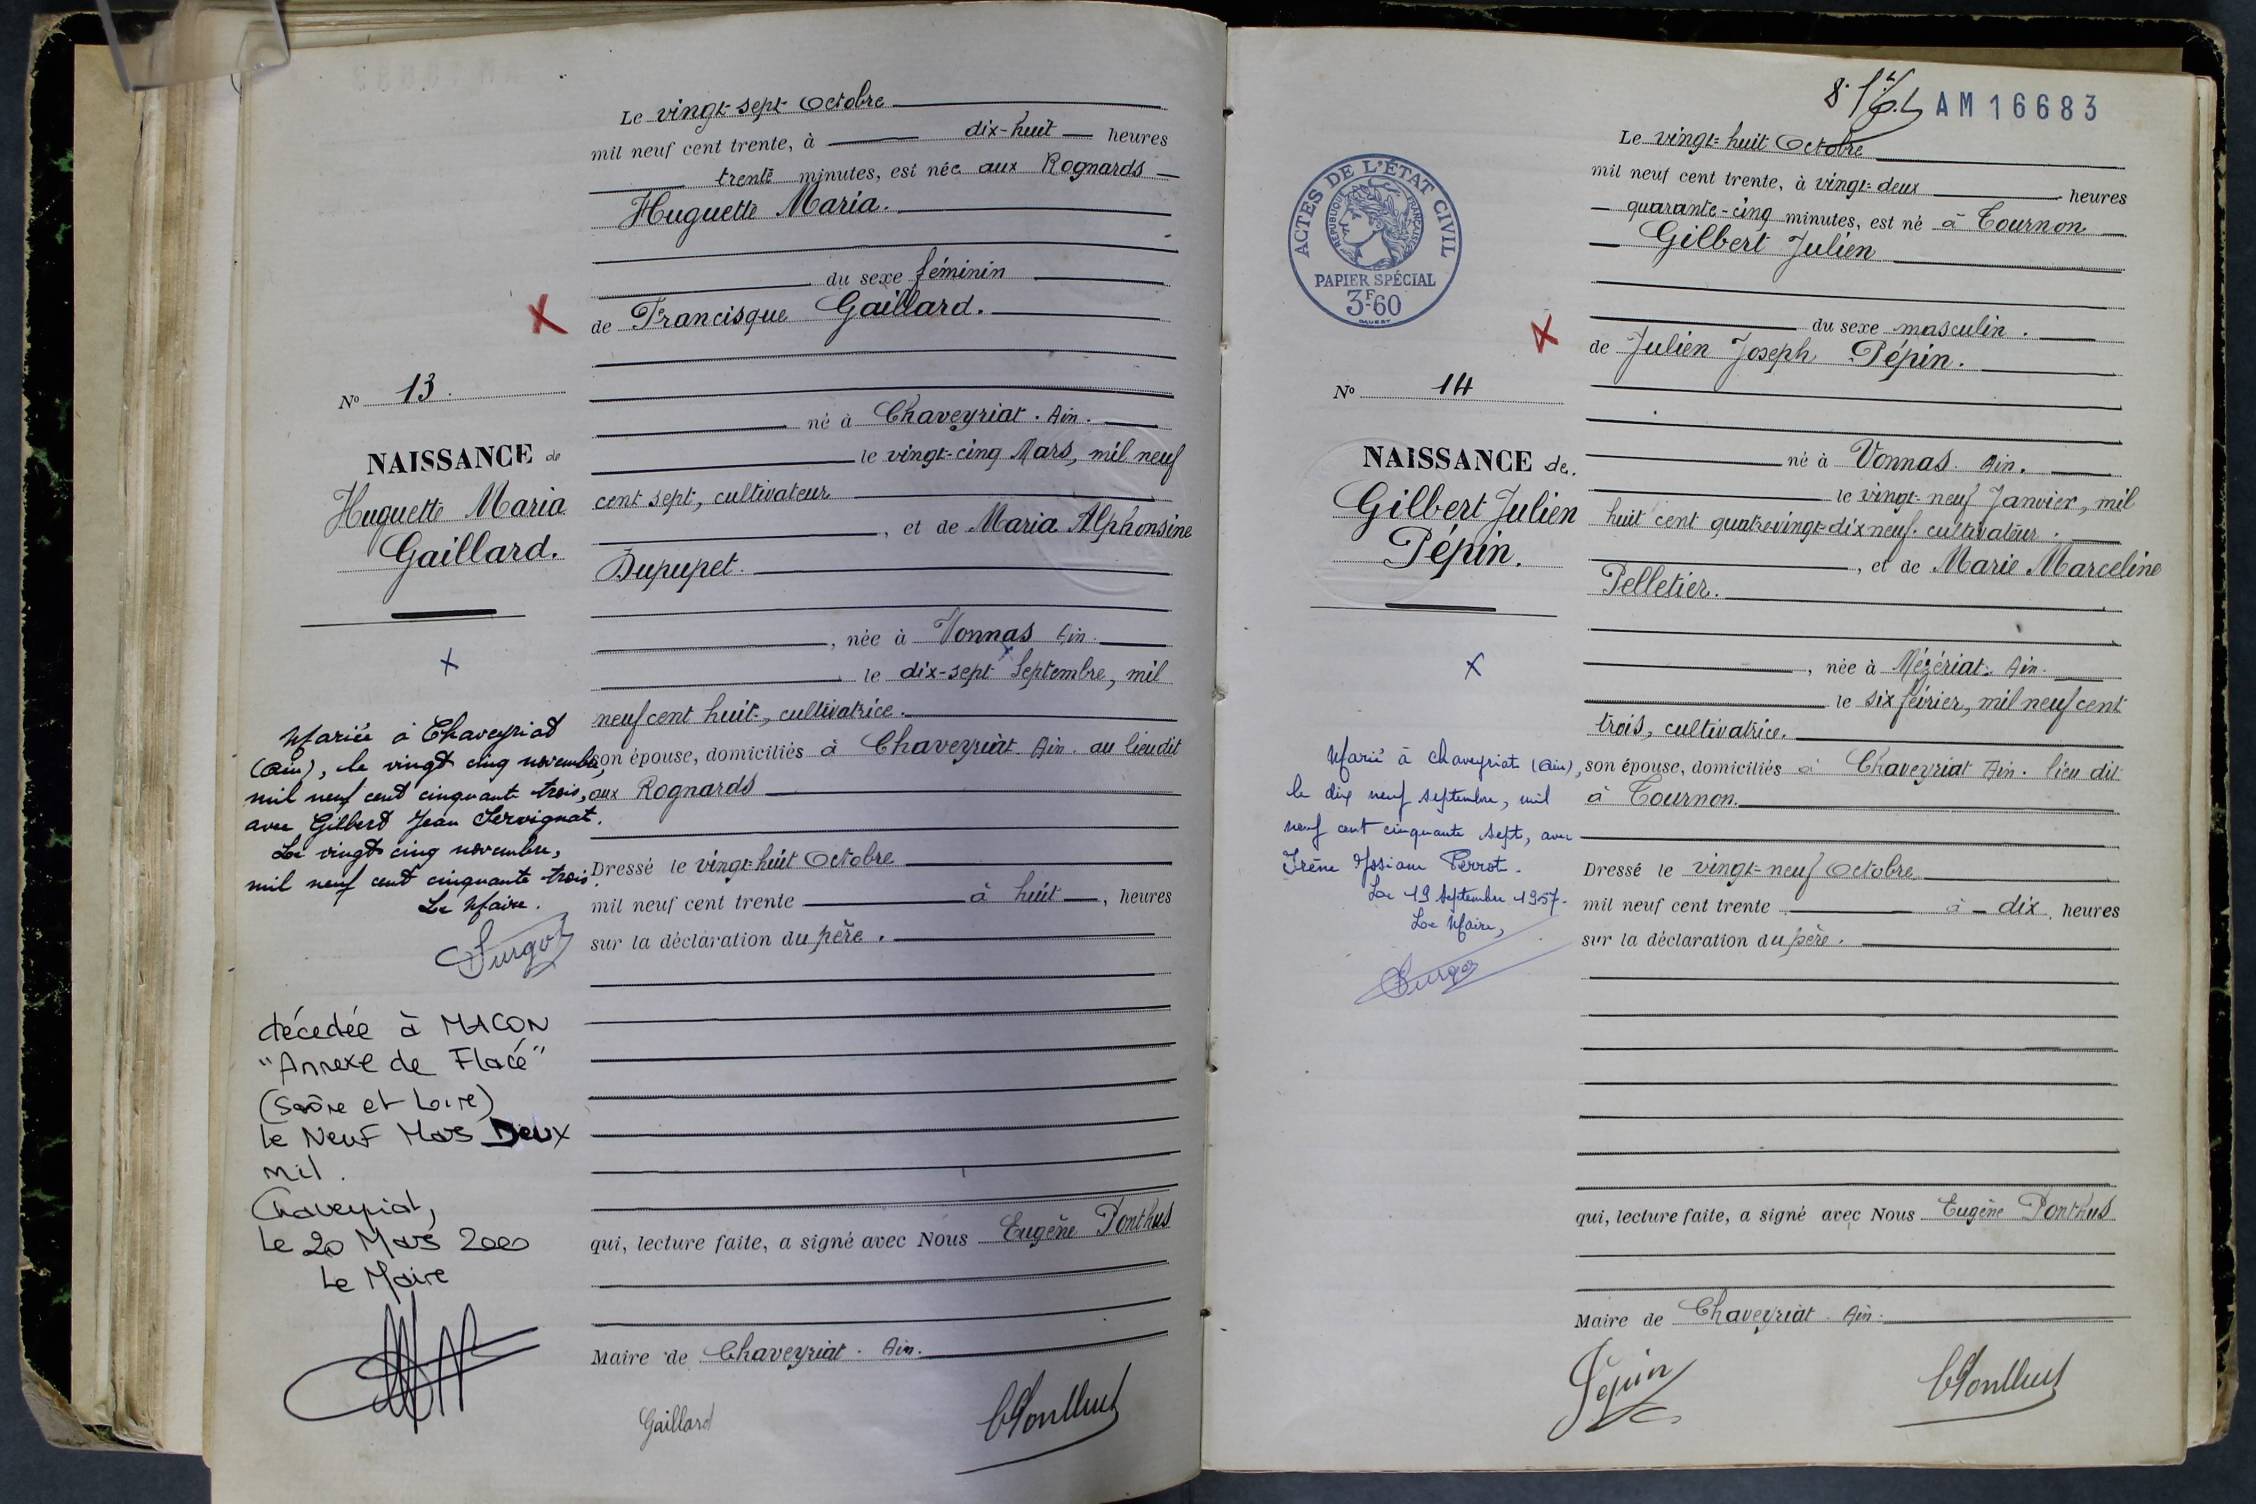 Le vingt-sept Octobre
mil neuf cent trente, à dix-huit heures
trente minutes, est née aux Rognards
Huguette Maria.
du sexe féminin
de Francisque Gaillard.
né à Chaveyriat. Ain.
le vingt-cinq Mars, mil neuf
cent sept, cultivateur
, et de Maria Alphonsine
Dupupet.
, née à Vonnas Ain.
le dix-sept Septembre, mil
neuf cent huit, cultivatrice.
son épouse, domiciliés à Chaveyriat Ain. au lieu dit
aux Rognards
Dressé le vingt-huit Octobre
mil neuf cent trente à huit, heures
sur la déclaration du père.
qui, lecture faite, a signé avec Nous Eugène Ponthus
Maire de Chaveyriat. Ain.
Gaillard
N° 13.
NAISSANCE de
Huguette Maria
Gaillard.
Mariée à Chaveyriat
(Ain), le vingt cinq novembre,
mil neuf cent cinquante trois,
avec Gilbert Jean Servignat.
Le vingt cinq novembre,
mil neuf cent cinquante trois.
Le Maire.
décedée à MACON
"Annexe de Flacé"
(Saône et Loire)
le Neuf Mars Deux
mil.
Chaveyriat,
Le 20 Mars 2000
Le Maire
AM 16683
Le vingt-huit Octobre
mil neuf cent trente, à vingt-deux heures
quarante-cinq minutes, est né à Tournon
Gilbert Julien
du sexe masculin.
de Julien Joseph Pépin.
né à Vonnas. Ain.
le vingt-neuf Janvier, mil
huit cent quatrevingt-dix neuf. cultivateur.
, et de Marie Marceline
Pelletier.
, née à Mézériat. Ain.
le six février, mil neuf cent
trois, cultivatrice.
son épouse, domiciliés à Chaveyriat Ain. lieu dit
à Tournon.
Dressé le vingt-neuf Octobre
mil neuf cent trente à dix, heures
sur la déclaration du père.
qui, lecture faite, a signé avec Nous Eugène Ponthus
Maire de Chaveyriat. Ain.
Pépin
ACTES DE L'ÉTAT CIVIL
RÉPUBLIQUE FRANÇAISE
PAPIER SPÉCIAL
3F.60
N° 14
NAISSANCE de.
Gilbert Julien
Pépin.
Marié à Chaveyriat (Ain),
le dix neuf septembre, mil
neuf cent cinquante sept, avec
Irène Perrot.
Le 19 Septembre 1957.
Le Maire,